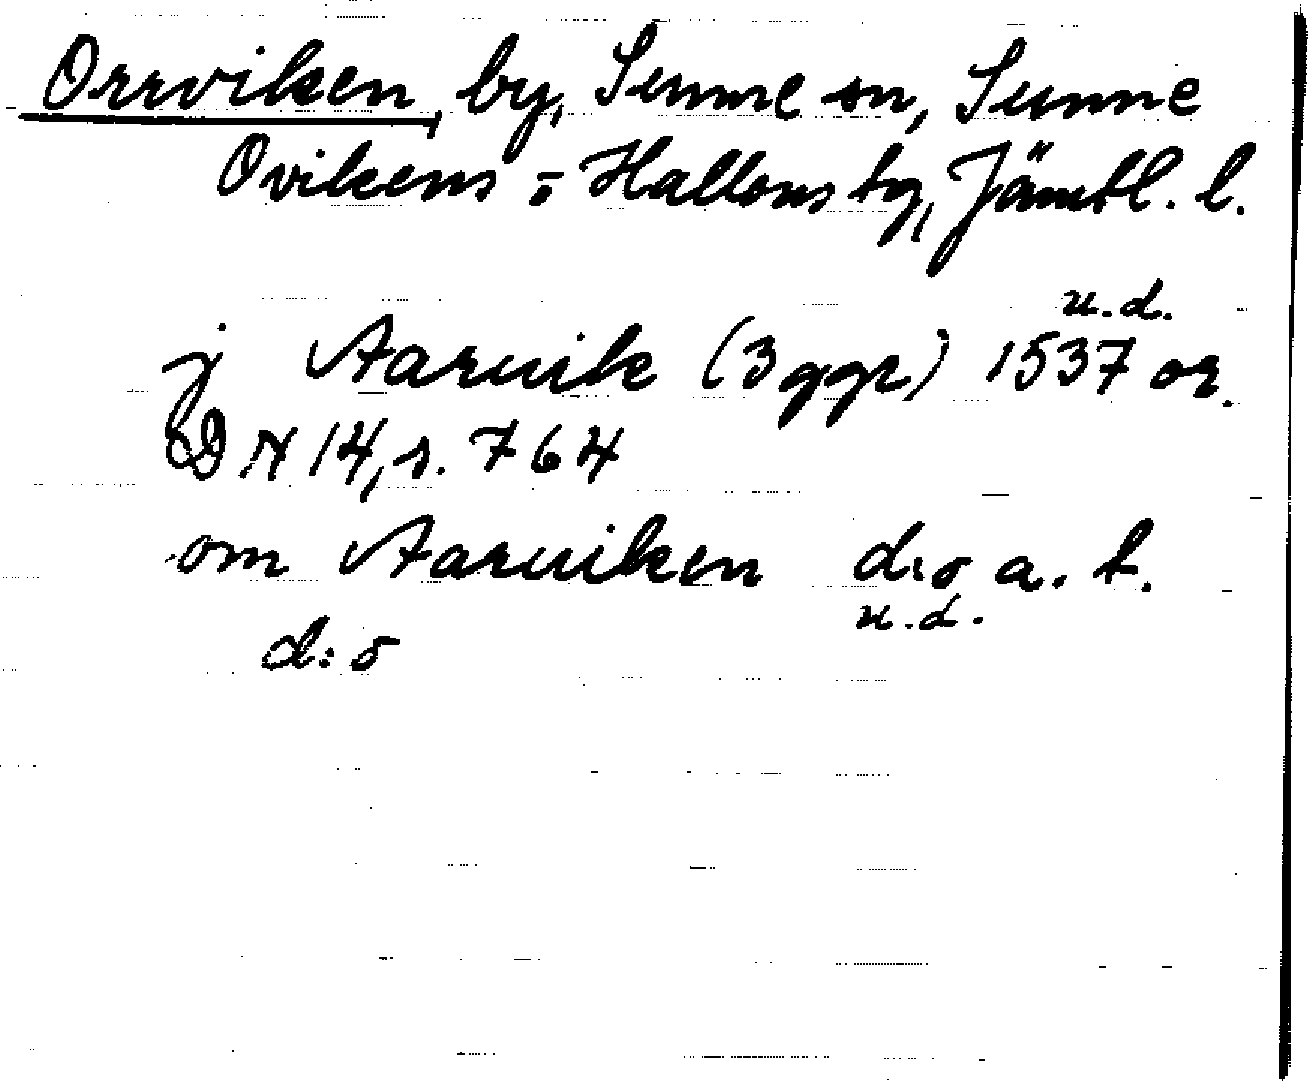 Orrviken, by, Sunne sn, Sunne
Ovikens o. Hallens tg, Jämtl. l.
u.d.
j Aaruik (3 ggr) 1537 or.
DN 14, s. 764
om Aaruiken d:o a. t.
u.d.
d:o